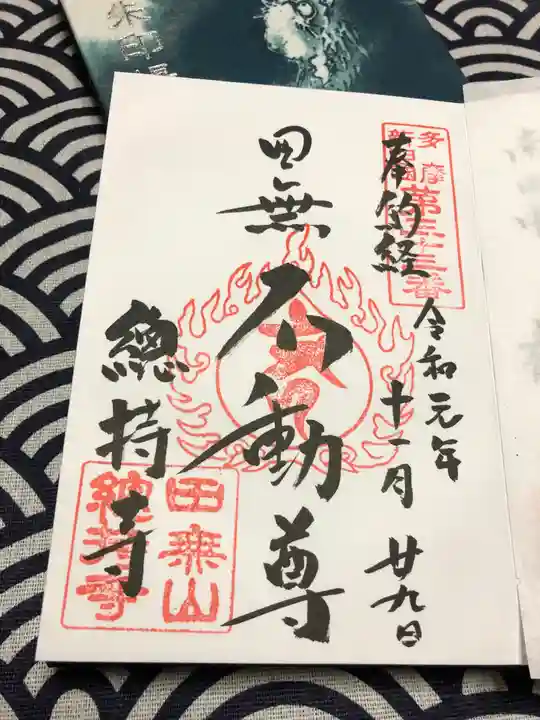 朱印帳
多摩
新四国
第三十三番
奉納経
令和元年
十一月
廿九日
田無
不動尊
總持寺
田無山
總持寺